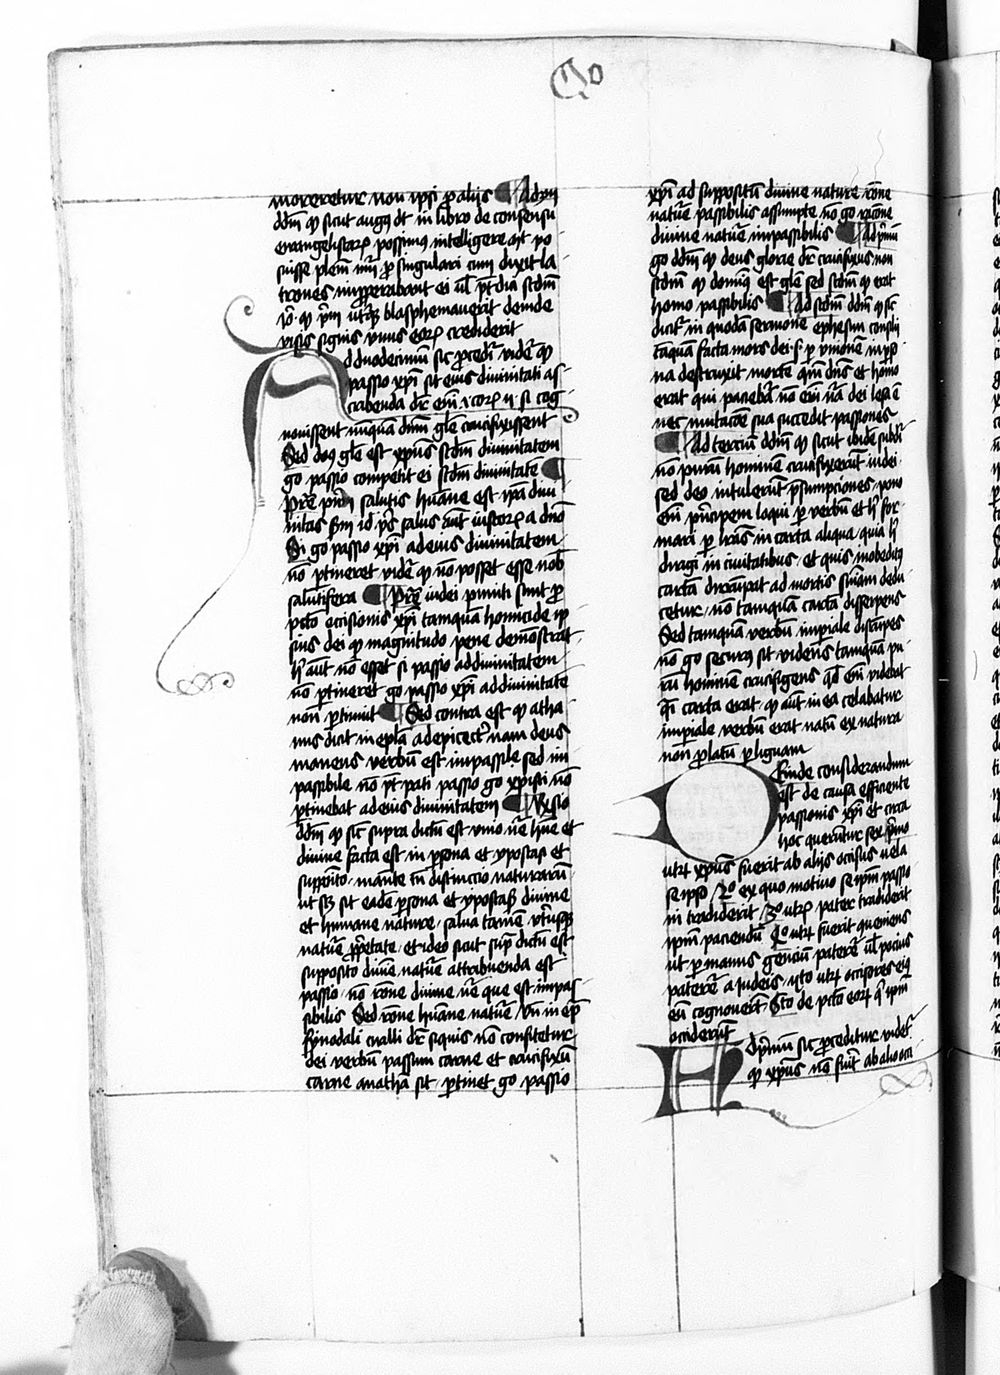 Qo
moreretur non ipsi pro alijs Ad xjm
ddm qd sicut augs dt in libro de consensu
evangelistarum possumus intelligere
trones improperabant ei ul
qd utrqz blasphemaverit deinde
visis signis unus eorum crediderit
Ad duodecimum sic procedit videt qd
passio xpi sit eius divinitati as
cribenda dr em i corum ij si cog
novissent nunquam dnm gle crucifixissent
Sed dns gle est xpus scdm divinitatem
go passio competit ei scdm divinitate
Pre pnm salutis humane est ipa divi
nitas scdm id ps salus aut iustorum a dno
Si go passio xpi ad eius divinitatem
no ptineret videt qd no posset esse nob
salutifera Pre iudei puniti sunt pro
pcto occisionis xpi tamquam homicide ip
sius dei qd magnitudo pene demonstrat
h aut no esset si passio ad divinitatem
no ptineret go passio xpi ad divinitate
non ptinuit Sed contra est qd atha
nius dicit in epla ad epictet nam deus
manens verbum est impassibile sed im
passibile no pt pati passio go xpisti no
ptinebat ad eius divinitatem Rsio
ddm qd sic supra dictum est unio ne hne et
divine facta est in psona et ypostasi et
supposito manente tn distinctio naturarum
ut scz sit eadem psona et ypostasis divine
et humane nature salva tamen utriusqz
nature proprietate et ideo sicut sup dictum est
supposito divine nature attribuenda est
passio no rone divine ne que est impas
sibilis Sed rone humane nature Un in ep
synodali cirilli dr siquis non confitetur
dei verbum passum carne et crucifixum
carne anathema sit ptinet go passio
xpi ad suppositum divine nature rone
nature passibilis assumpte no go racione
divine nature impassibilis Ad primum
go ddm qd deus glorie dr crucifixus non
scdm qd dominus est gle sed scdm qd erat
homo passibilis Ad scdm ddm qd sic
dicitur in quodam sermone ephesini consilij
tamquam facta mors dei s p unionem in pso
na destruxit morte qm dns et homo
erat qui paciebat no em na dei lesa e
nec mutacoe sua succedit passiones
Ad tercium ddm qd sicut ibidem subdr
no purum hominem crucifixerunt iudei
sed deo intulerunt psumpciones pono
em principem loqui p verbum et h for
mari p lras in carta aliqua quia h
dirigi in civitatibus et quis inobediens
cartam dirumpat ad mortis suiam dedu
cetur no tamquam cartam disserpens
Sed tamquam verbum impiale discerpes
no go securus sit videns tamquam pu
rum hominem crucifigens qd em videbat
qi carta erat qd aut in ea celabatur
impiale verbum erat natum ex natura
non prolatum p liguam
Deinde considerandum
est de causa efficiente
passionis xpi et circa
hoc queruntur sex primo
utrum xpus fuerit ab alijs occisus vel a
se ipso 2o ex quo motivo se ipm passio
ni tradiderit 3o utrum pater tradiderit
ipm paciendum 4o utrum fuerit queniens
ut p manus gencium pateret ul pocius
pateret a judeis 5to utrum occisores eius
eum cognoverit Sexto de pcto eorum qi ipm
occiderunt
Ad primum sic proceditur videtur
qd xpus no fuit ab alio occi